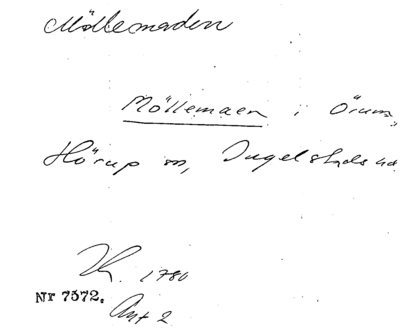 Möllemaden
Möllemaen i Örum,
Hörup sn, Ingelstads hd
1780
Nr 7572.
Ant 2